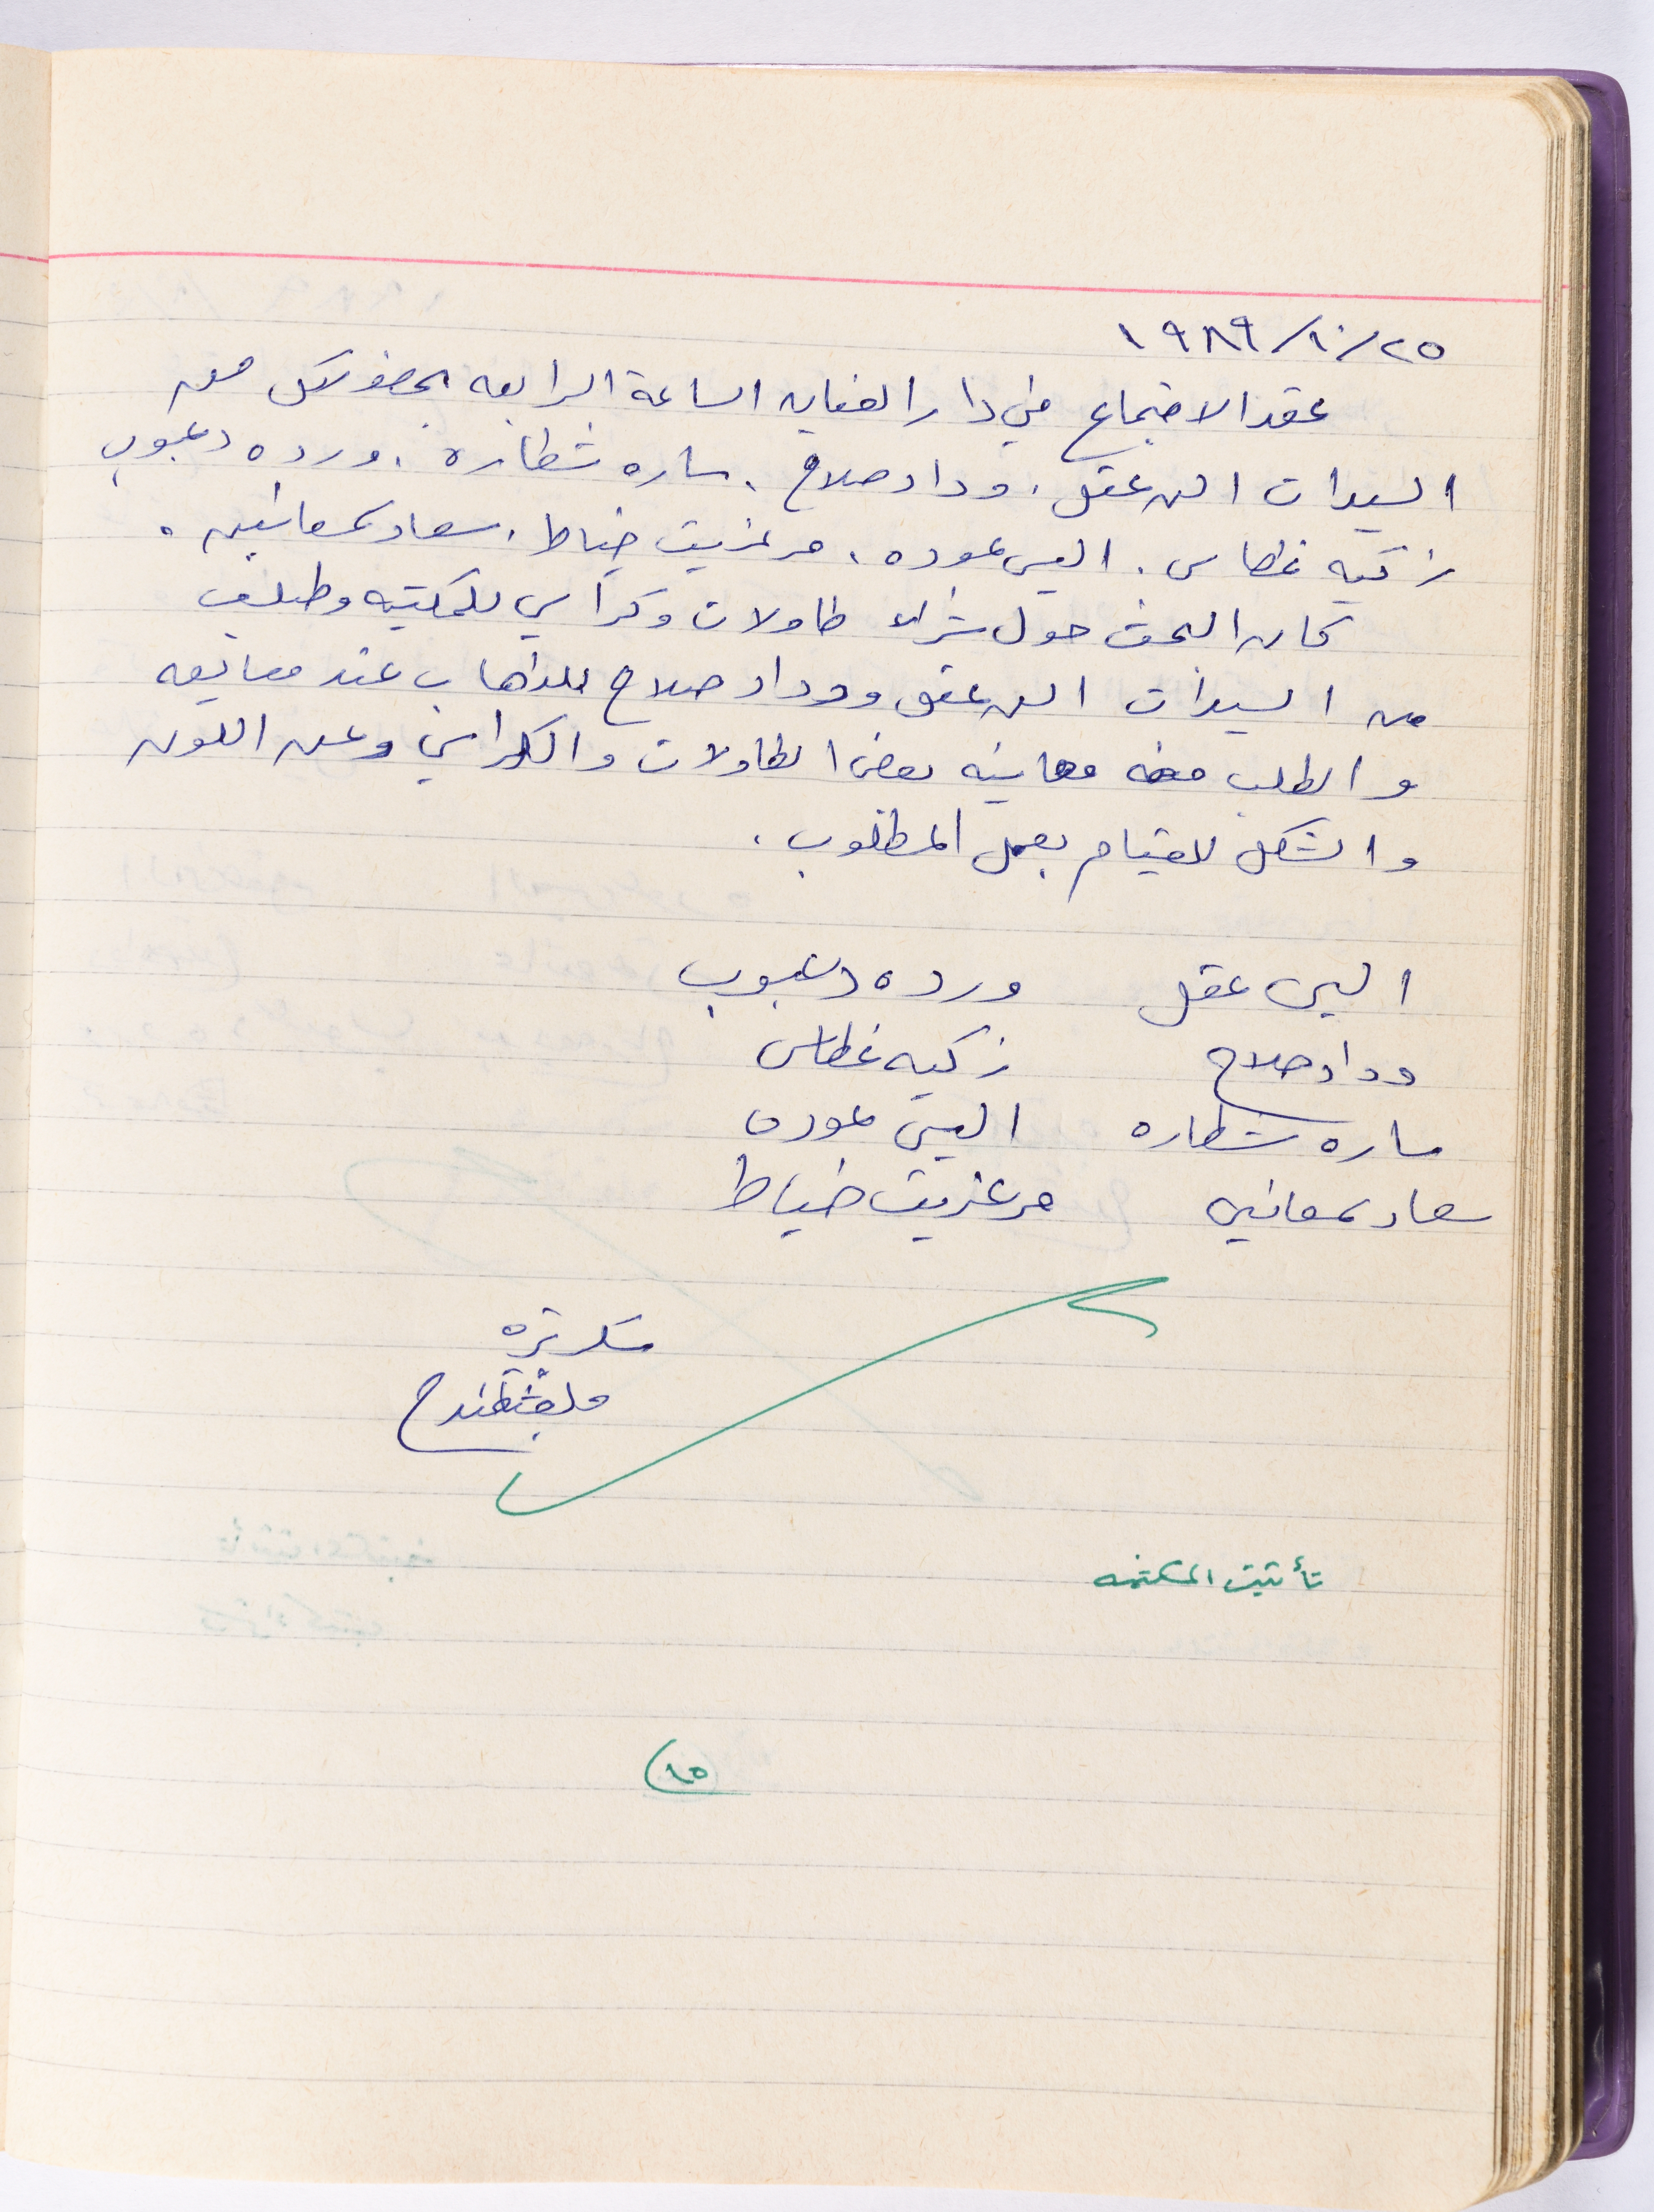 ١٩٨٩/١٠/٢٥
عقد الاجتماع في دار الفنايه الساعة الرابعه بحضور كل من
السيدات الن عقل، وداد صلاح، ساره شطاره، ورده دعبوب
زكيه غطاس، اليس عوده، مرغريت خياط، سعاد سمعانيه.
كان البحث حول شراء طاولات وكراسي للمكتبه وطلب
من السيدات الن عقل ووداد صلاح للذهاب عند
والطلب منه معاينه بعض الطاولات والكراسي وعن اللون
والشكل للقيام بعمل المطلوب.
الين عقل ورده دعبوب
وداد صلاح زكيه غطاس
ساره شطاره اليس عوده
سعاد سمعانيه مرغريت خياط
سكرتيره
تأثيث المكتبه
١٥